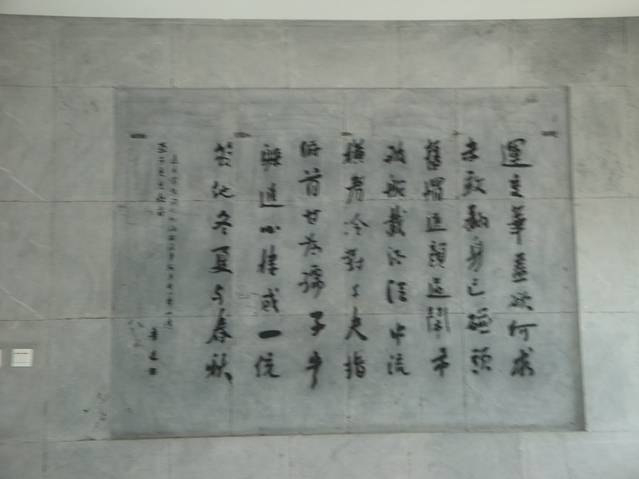 運交華蓋欲何求
未敢翻身已碰頭
舊帽遮顏過鬧市
破船載酒泛中流
橫眉冷對千夫指
俯首甘為孺子牛
躲進小樓成一統
管他冬夏與春秋
魯迅